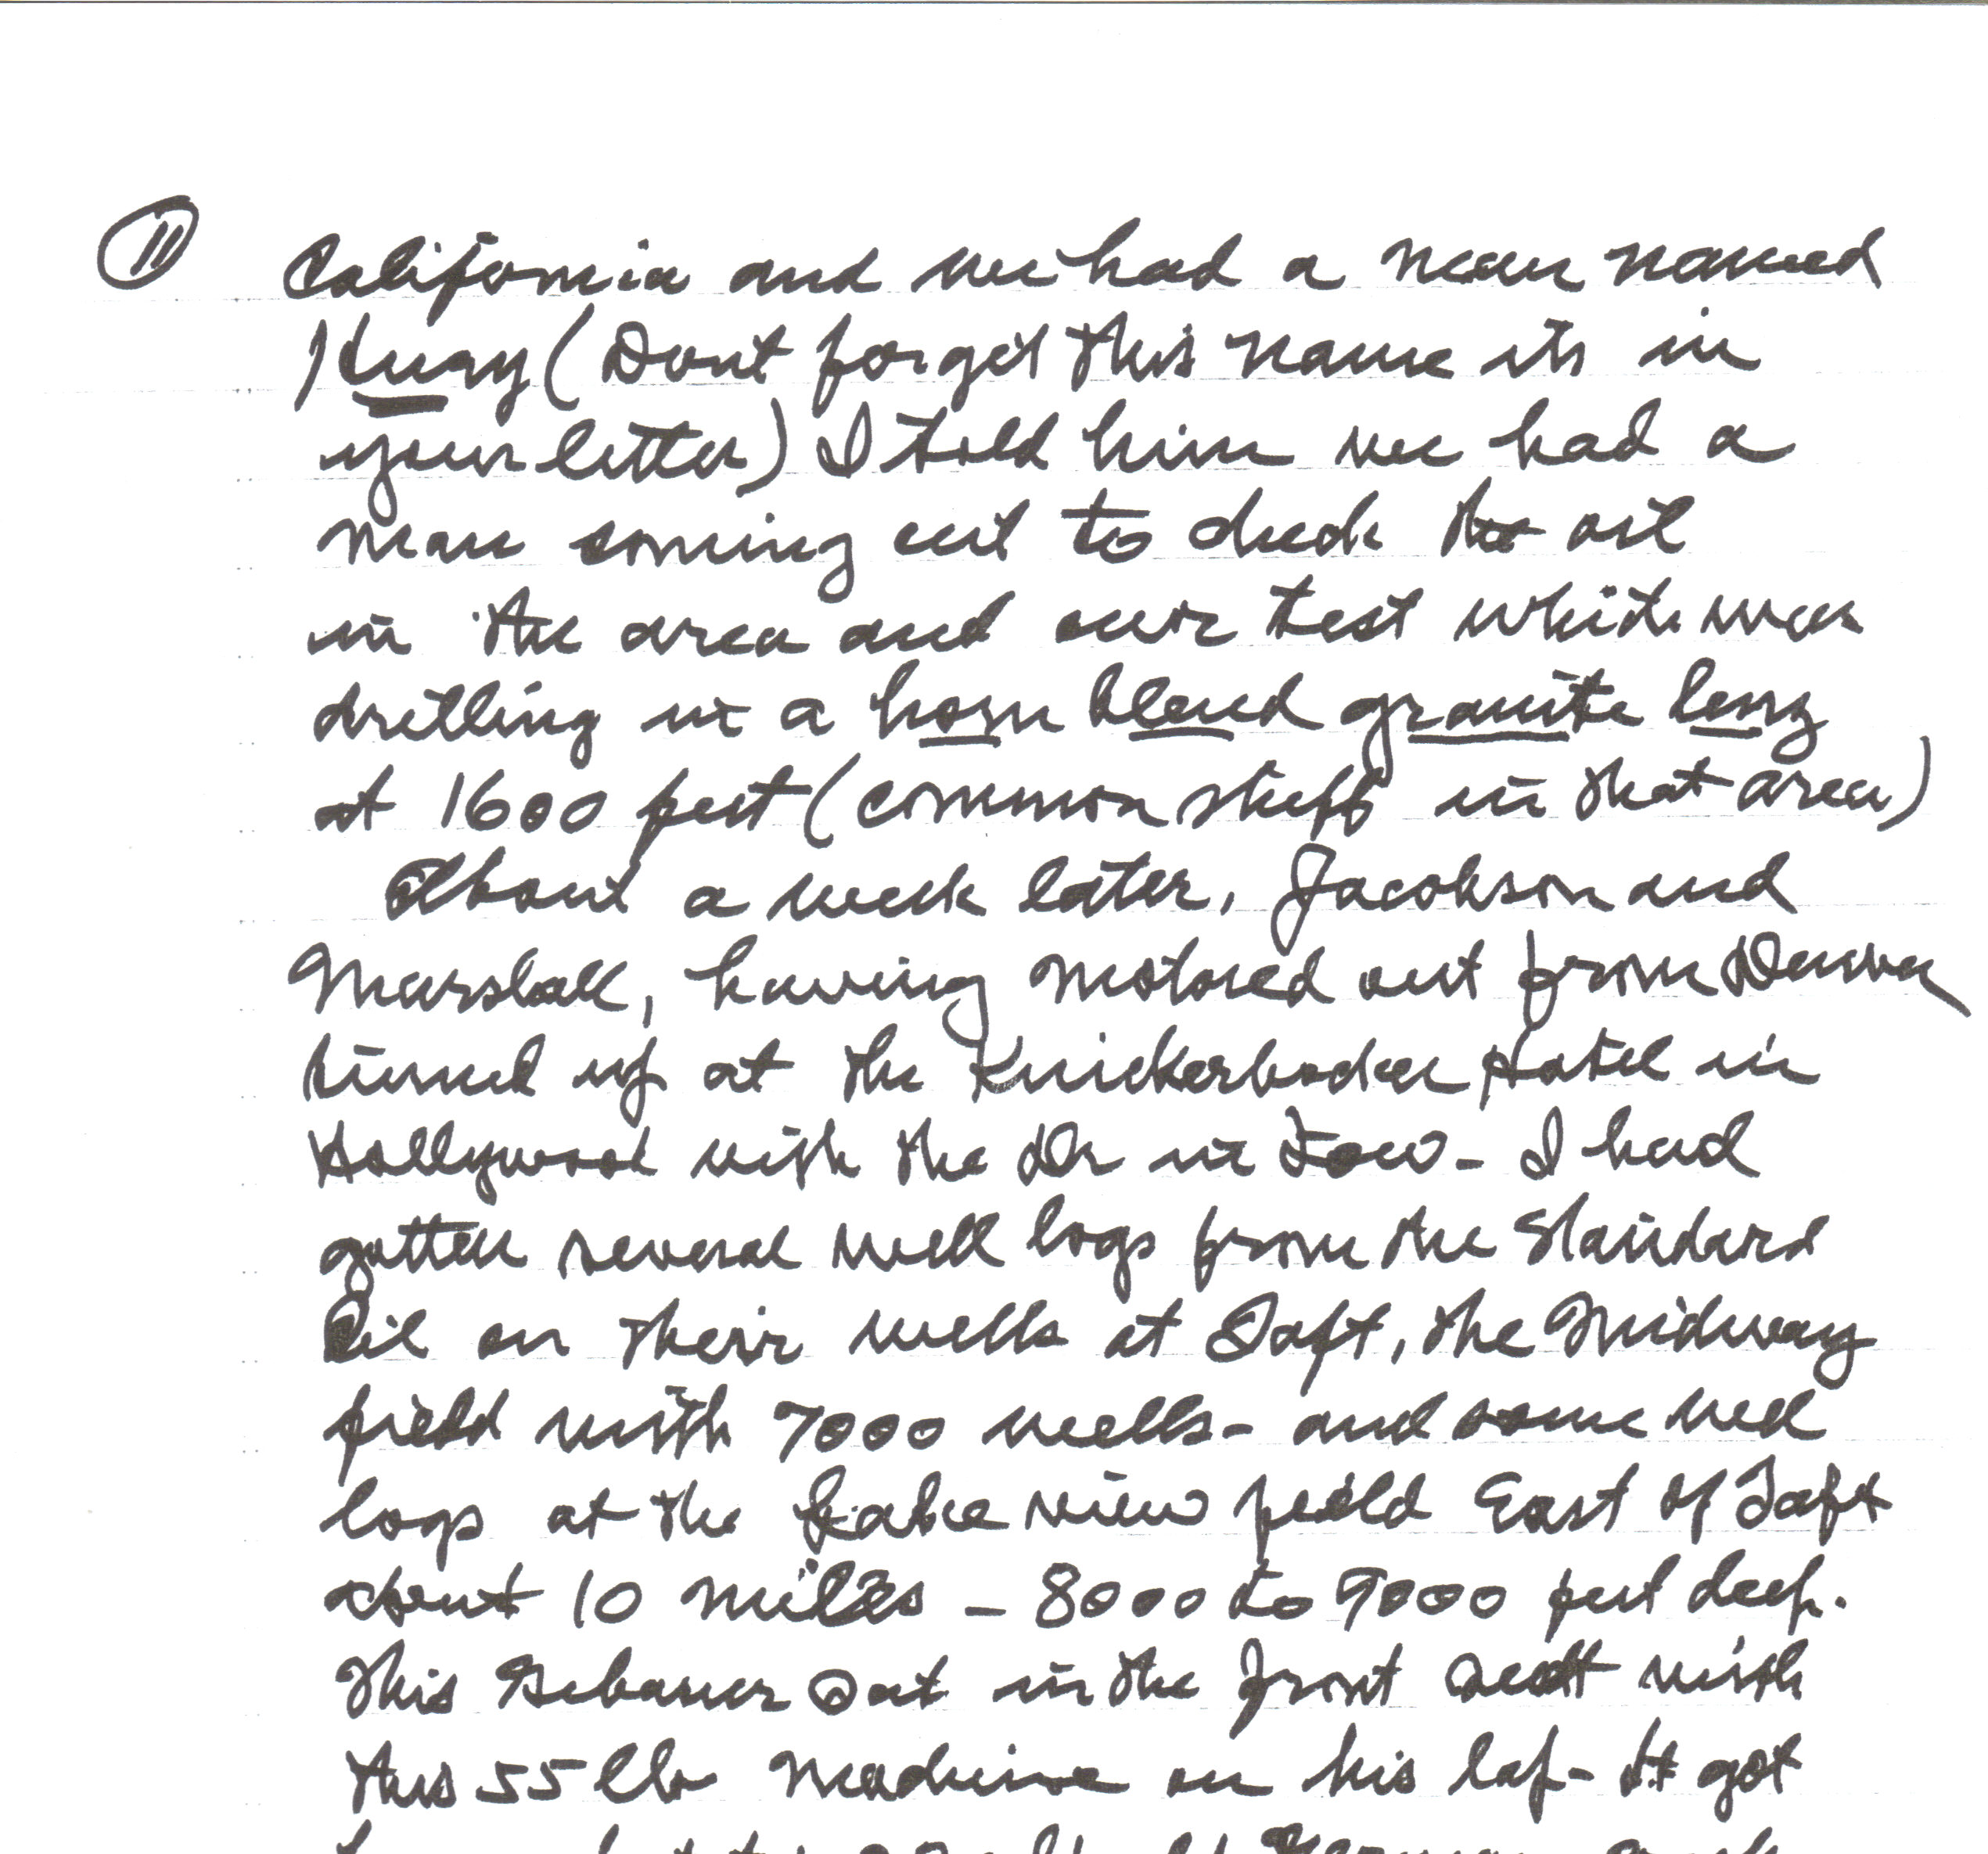 11
California and we had a man named
(Dont forget this name its in
your letter) I told him we had a
man coming out to check the oil
in the area and our test which was
drilling in a horn blend granite leng
at 1600 feet (common stuff in that area)
About a week later, Jacobson and
Marshall, having motored out from Denver
turned up at the Knickerbocker Hotel in
Hollywood with the Dr in tow - I had
gotten several well logs from the Standard
Oil on their wells at Taft, the Midway
field with 7000 wells - and some well
logs at the Lake view feild East of Taft
about 10 miles - 8000 to 9000 feet deep.
This Gebauer sat in the front seat with
this 55 lb machine on his lap - It got